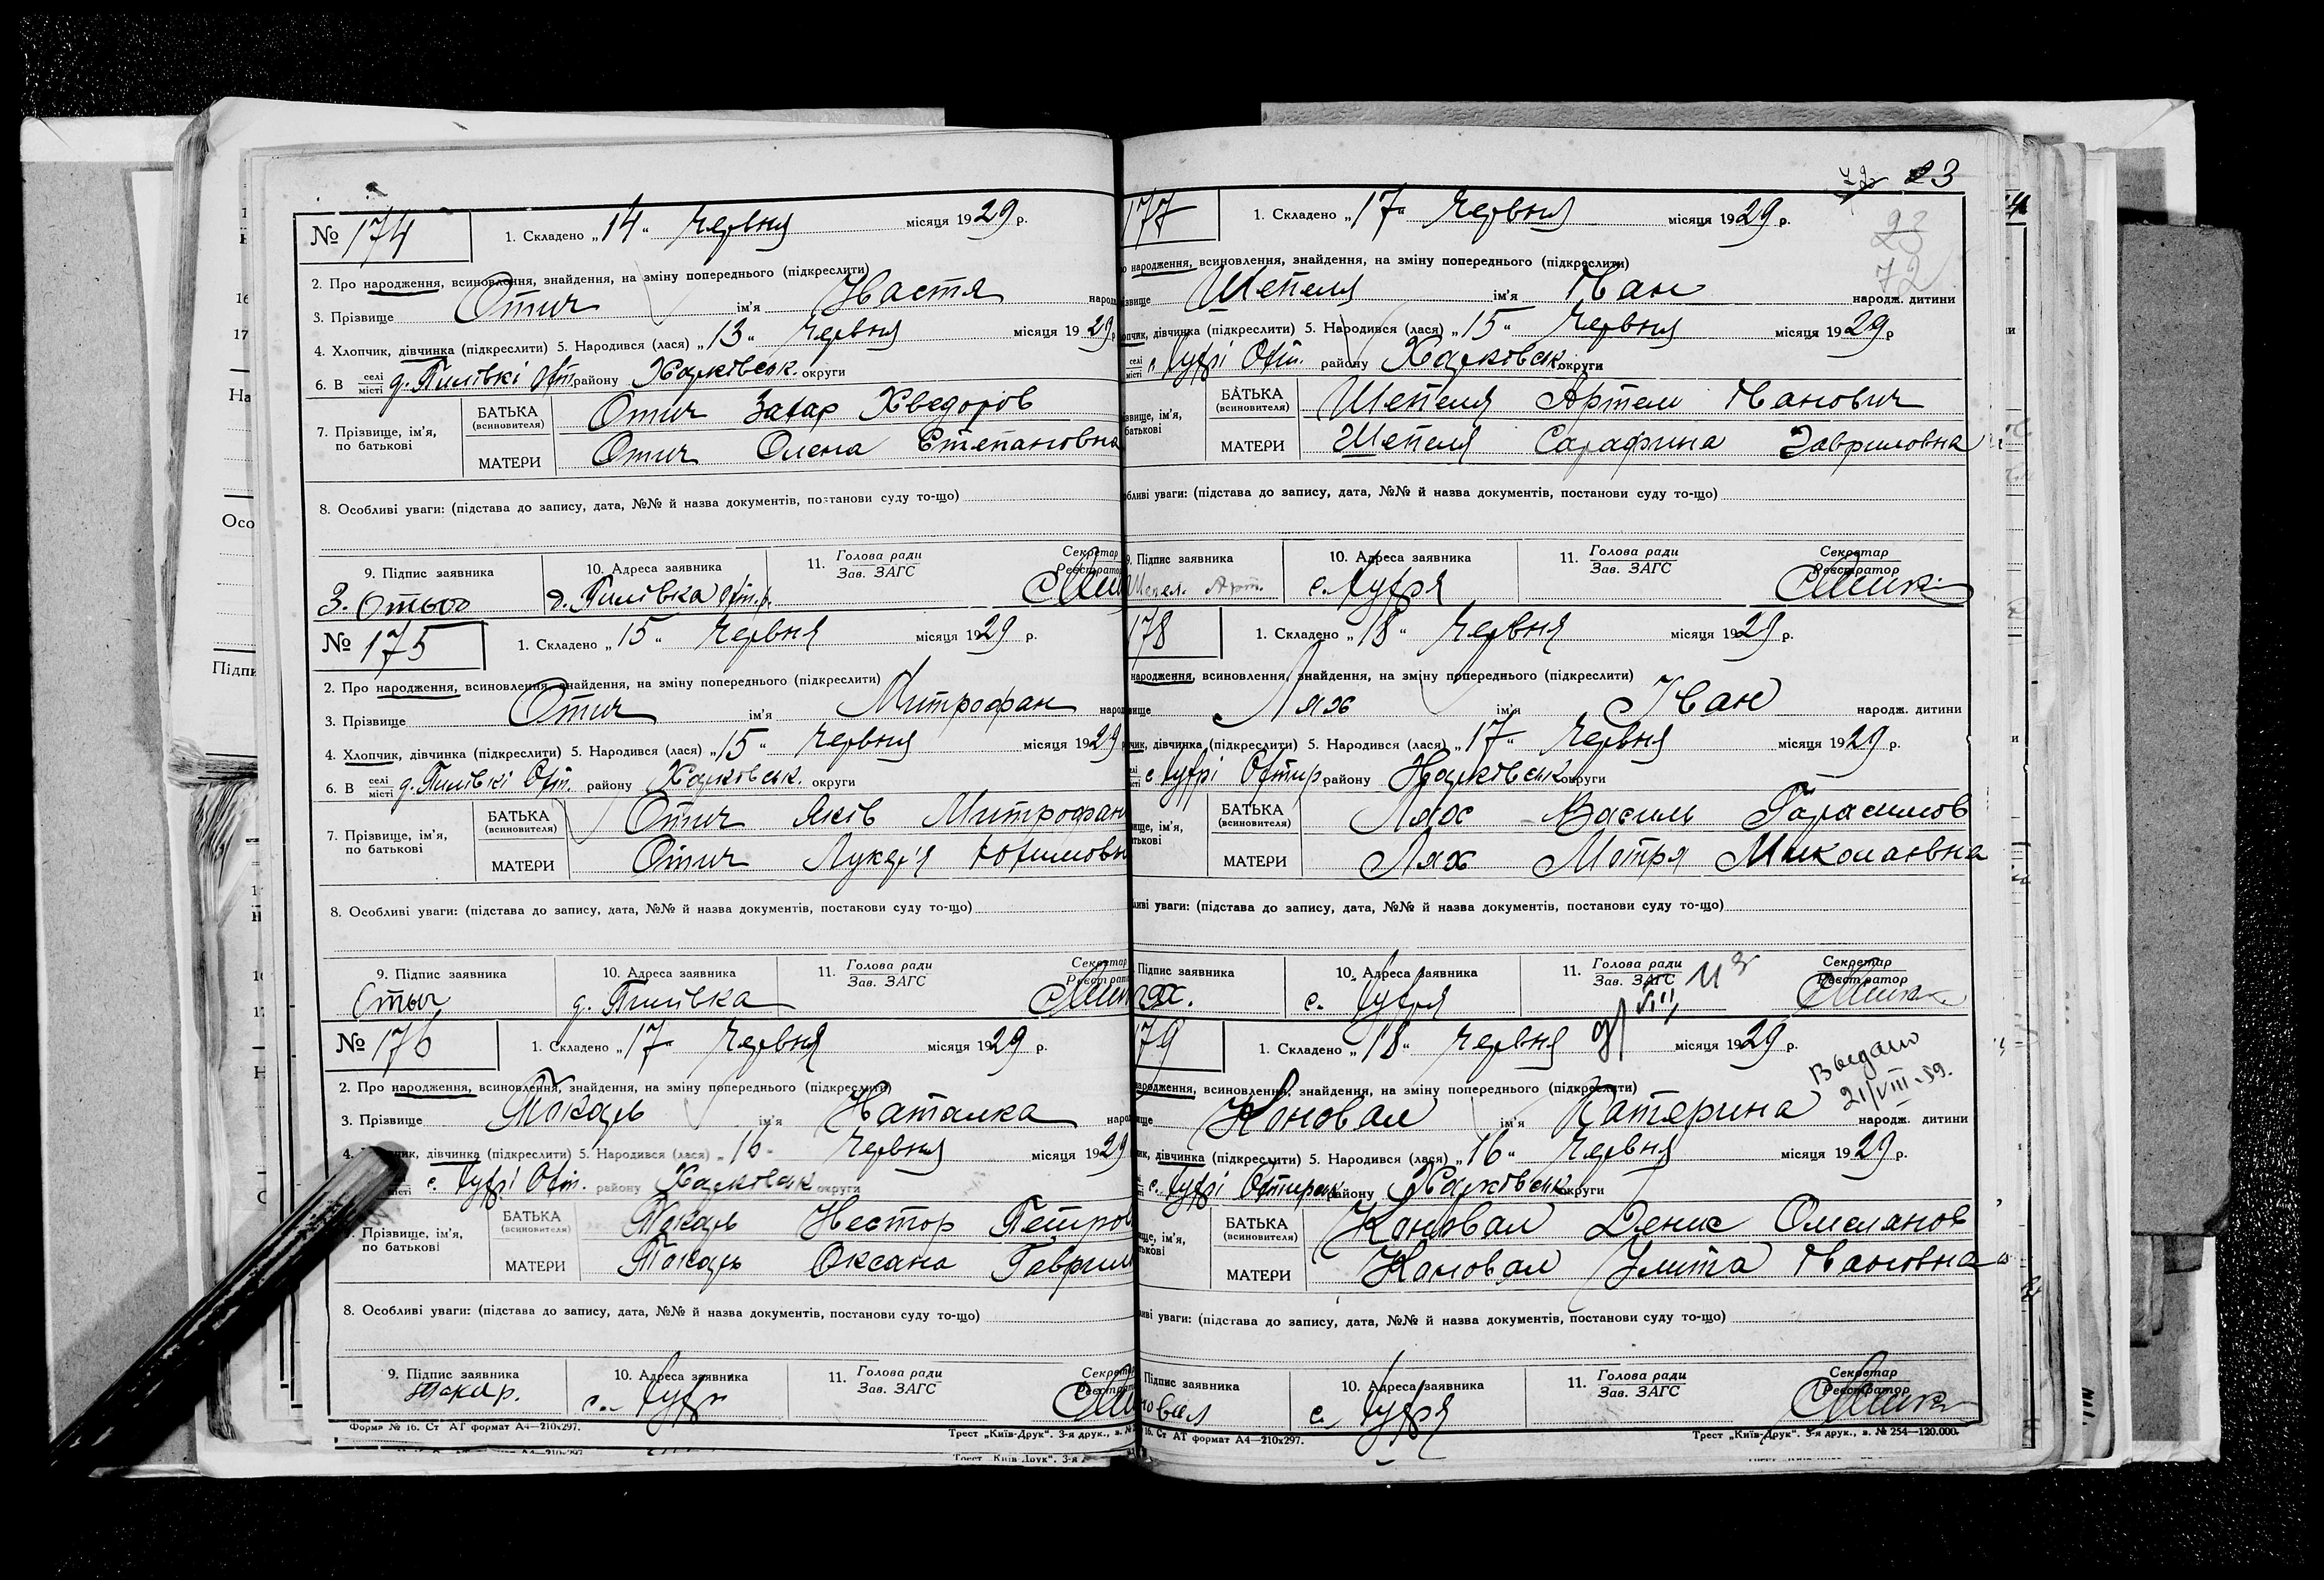 № 174
1. Складено „14“ Червня місяця 1929 р.
2. Про народження, всиновлення, знайдення, на зміну попереднього (підкреслити)
3. Прізвище Отич ім'я Настя народ
4. Хлопчик, дівчинка (підкреслити) 5. Народився (лася) „13“ Червня місяця 1929 р
6. В селі місті д. Пилівкі Охт. району Харківськ. округи
7. Прізвище, ім'я, по батькові
БАТЬКА (всиновителя) Отич Захар Хведоров
МАТЕРИ Отич Олена Степановна
8. Особливі уваги: (підстава до запису, дата, №№ й назва документів, постанови суду то-що)
9. Підпис заявника 10. Адреса заявника 11. Голова ради Зав. ЗАГС Секретар Реєстратор
З. Отыч д. Пилівка Охт. р.
№ 175
1. Складено „15“ Червня місяця 1929 р.
2. Про народження, всиновлення, знайдення, на зміну попереднього (підкреслити)
3. Прізвище Отич ім'я Митрофан народ
4. Хлопчик, дівчинка (підкреслити) 5. Народився (лася) „15“ Червня місяця 1929 р
6. В селі місті д. Пилівкі Охт. району Харківськ. округи
7. Прізвище, ім'я, по батькові
БАТЬКА (всиновителя) Отич Яків Митрофан
МАТЕРИ Отич Лукер'я Юхимовн
8. Особливі уваги: (підстава до запису, дата, №№ й назва документів, постанови суду то-що)
9. Підпис заявника 10. Адреса заявника 11. Голова ради Зав. ЗАГС Секретар Реєстрат
Отыч д. Пилівка
№ 176
1. Складено „17“ Червня місяця 1929 р.
2. Про народження, всиновлення, знайдення, на зміну попереднього (підкреслити)
3. Прізвище Токарь ім'я Наталка народ
4. дівчинка (підкреслити) 5. Народився (лася) „16“ Червня місяця 1929
місті с. Чупрі Охт. району Харківськ округи
Прізвище, ім'я, по батькові
БАТЬКА (всиновителя) Токарь Нестор Петров
МАТЕРИ Токарь Оксана Гаврил
8. Особливі уваги: (підстава до запису, дата, №№ й назва документів, постанови суду то-що)
9. Підпис заявника 10. Адреса заявника 11. Голова ради Зав. ЗАГС Секретар
Токар. с. Чупр
Форма № 16. Ст АТ формат А4—210х297.
Трест „Київ-Друк“. 3-я друк., з. №
72 23
23
72
177
1. Складено „17“ Червня місяця 1929 р.
народження, всиновлення, знайдення, на зміну попереднього (підкреслити)
Шепеля ім'я Іван народж. дитини
дівчинка (підкреслити) 5. Народився (лася) „15“ Червня місяця 1929 р
селі місті с. Чупрі Охт. району Харківськ округи
БАТЬКА (всиновителя) Шепеля Артем Іванович
МАТЕРИ Шепеля Сарафина Гавриловна
уваги: (підстава до запису, дата, №№ й назва документів, постанови суду то-що)
9. Підпис заявника 10. Адреса заявника 11. Голова ради Зав. ЗАГС Секретар Реєстратор
Шепел. Арт. с. Чупря
178
1. Складено „18“ Червня місяця 1929 р.
народження, всиновлення, знайдення, на зміну попереднього (підкреслити)
Лях ім'я Іван народж. дитини
дівчинка (підкреслити) 5. Народився (лася) „17“ Червня місяця 1929 р.
с Чупрі Охтир району Харківськ округи
БАТЬКА (всиновителя) Лях Василь Гарасимов
МАТЕРИ Лях Мотря Миколаєвна
уваги: (підстава до запису, дата, №№ й назва документів, постанови суду то-що)
Підпис заявника 10. Адреса заявника 11. Голова ради Зав. ЗАГС Секретар Реєстратор
с. Чупря
179
1. Складено „18“ Червня місяця 1929 р.
Выдано
21/VIII-59.
народження, всиновлення, знайдення, на зміну попереднього (підкреслити)
Коновал ім'я Катерина народж. дитини
дівчинка (підкреслити) 5. Народився (лася) „16“ Червня місяця 1929 р.
с. Чупрі Охтирськ району Харківськ округи
БАТЬКА (всиновителя) Коновал Денис Омелянов
МАТЕРИ Коновал Улита Івановна
уваги: (підстава до запису, дата, №№ й назва документів, постанови суду то-що)
Підпис заявника 10. Адреса заявника 11. Голова ради Зав. ЗАГС Секретар Реєстратор
с. Чупря
16. Ст АТ формат А4—210х297.
Трест „Київ-Друк“. 3-я друк., з. № 254—120.000.